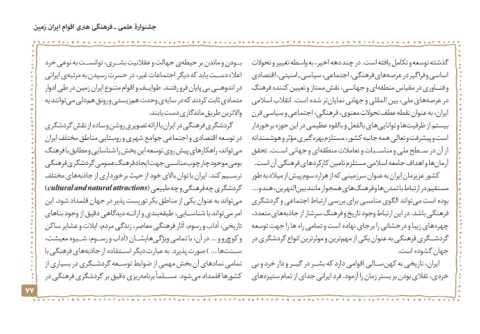 جشنوارهٔ علمی ـ فرهنگی هنری اقوام ایران زمین
گذشته توسعه و تکامل یافته است. در چند دهه اخیر، به واسطه تغییر و تحولات
اساسی و فراگیر در عرصه‌های فرهنگی، اجتماعی، سیاسی، امنیتی، اقتصادی
و فناوری در مقیاس منطقه‌ای و جهانی، نقش ممتاز و تعیین کننده فرهنگ
در عرصه‌های ملی، بین المللی و جهانی نمایان‌تر شده است. انقلاب اسلامی
ایران، به عنوان نقطه عطف تحولات معنوی، فرهنگی، اجتماعی و سیاسی قرن
بیستم از ظرفیت‌ها و توانایی‌های بالفعل و بالقوه عظیمی در این حوزه برخوردار
است و پیشرفت و تعالی همه جانبه کشور، مستلزم بهره گیری مؤثر و هوشمندانه
از آن در سطح ملی و مناسبات و تعاملات منطقه‌ای و جهانی است. تحقق
آرمان‌ها و اهداف جامعه اسلامی مستلزم تامین کارکردهای فرهنگی آن است.
کشور عزیزمان ایران به عنوان سرزمینی که از هزاره سوم پیش از میلاد به طور
مستقیم در ارتباط با تمدن‌ها و فرهنگ‌های همجوار مانند بین النهرین، هند و...
بوده است می‌تواند الگوی مناسبی برای بررسی ارتباط اجتماعی و گردشگری
فرهنگی باشد. در این ارتباط وجود تاریخ و فرهنگ سرشار از جاذبه‌های متعدد،
چهره‌های زیبا و درخشانی را بر جای نهاده است و تمامی راه ها را جهت توسعه
گردشگری فرهنگی به عنوان یکی از مهم‌ترین و موثرترین انواع گردشگری در
جهان گشوده است.
ایران، تاریخی به کهن‌سالی اقوامی دارد که بشر در گیر و دار خرد و بی
خردی، تقلای بودن بر بستر زمان را آزمود. فرد ایرانی جدای از تمام ستیزه‌های
بودن و ماندن بر حیطه‌ی جهالت و عقلانیت بشری، توانست به نوعی خرد
اعلاء دست یابد که دیگر اجتماعات غیر، در حسرت رسیدن به مرتبه‌ی ایرانی
در اندوهی بی پایان فرو رفتند. طوایف و اقوام متنوع ایران زمین در طی ادوار
متمادی ثابت کردند که در سایه‌ی وحدت هم‌زیستی و رونق هم‌دلی می‌توانند به
والاترین طریق ماندگاری دست یابند.
گردشگری فرهنگی در ایران با ارائه تصویری روشن و ساده از نقش گردشگری
در توسعه اقتصادی و اجتماعی جوامع شهری و روستایی مناطق مختلف ایران
می‌تواند، راهکارهای پیش روی توسعه این بخش را شناسایی و مطابق با فرهنگ
بومی موجود چارچوب مناسبی جهت ایجاد فرهنگ عمومی گردشگری فرهنگی
ترسیم کند. ایران با توان بالای خود از حیث برخورداری از جاذبه‌های مختلف
گردشگری چه فرهنگی و چه طبیعی (cultural and natural attractions)
می‌تواند به عنوان یکی از مناطق بکر توریست پذیر در جهان قلمداد شود. این
امر می‌تواند با شناسایی، طبقه‌بندی و ارائه دیدگاهی دقیق از وجود بناهای
تاریخی، آداب و رسوم، آثار فرهنگی معاصر، زندگی مردم، ایلات و عشایر ساکن
و کوچ‌رو و... در آن، با تمامی ویژگی‌هایشان (آداب و رسوم، شیوه معیشت،
سنت‌ها...) صورت پذیرد. به عبارت دیگر استفاده از جاذبه‌های فرهنگی با
تمامی نمادهای آن بخش مهمی از ضوابط توسعه گردشگری در بسیاری از
کشورها قلمداد می‌شود. مسلماً برنامه‌ریزی دقیق بر گردشگری فرهنگی در
۷۷